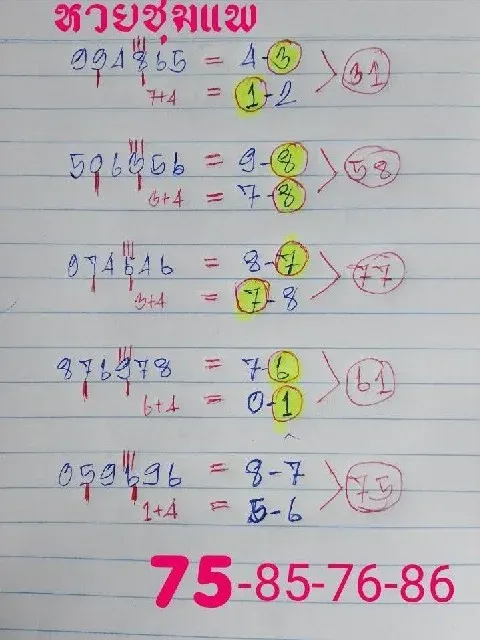 หวยชุมแพ
994865 = 4-3
31
7+4 = 1-2
506556 = 9-8
58
= 7-8
974646 = 8-7
77
3+4 = 7-8
876978 = 7-6
61
6+4 = 0-1
059696 = 8-7
75
1+4 = 5-6
75-85-76-86